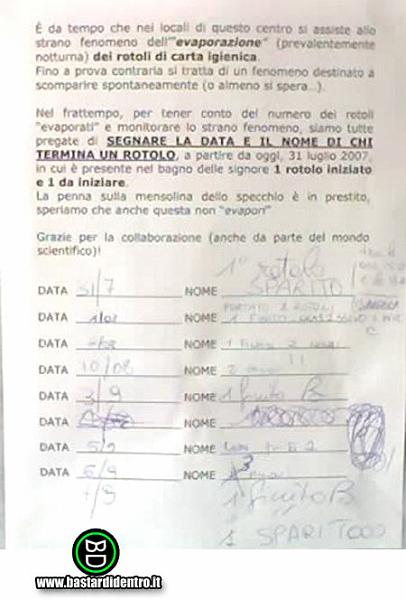 È da tempo che nei locali di questo centro si assiste allo
strano fenomeno dell'"evaporazione" (prevalentemente
notturna) dei rotoli di carta igienica.
Fino a prova contraria si tratta di un fenomeno destinato a
scomparire spontaneamente (o almeno si spera…).
Nel frattempo, per tener conto del numero dei rotoli
"evaporati" e monitorare lo strano fenomeno, siamo tutte
pregate di SEGNARE LA DATA E IL NOME DI CHI
TERMINA UN ROTOLO, a partire da oggi, 31 luglio 2007,
in cui è presente nel bagno delle signore 1 rotolo iniziato
e 1 da iniziare.
La penna sulla mensolina dello specchio è in prestito,
speriamo che anche questa non "evapori"
Grazie per la collaborazione (anche da parte del mondo
scientifico)!
1° rotolo
DATA 31/7 NOME SPARITO
PORTATO 2 ROTOLI
DATA 1/08 NOME 1 FINITO
DATA NOME 1
DATA 10/08 NOME 2
DATA 3/9 NOME 1 finito B
DATA NOME
DATA 5/9 NOME
DATA 6/9 NOME
7/9 1 finito B
1 SPARITOOO
www.bastardidentro.it